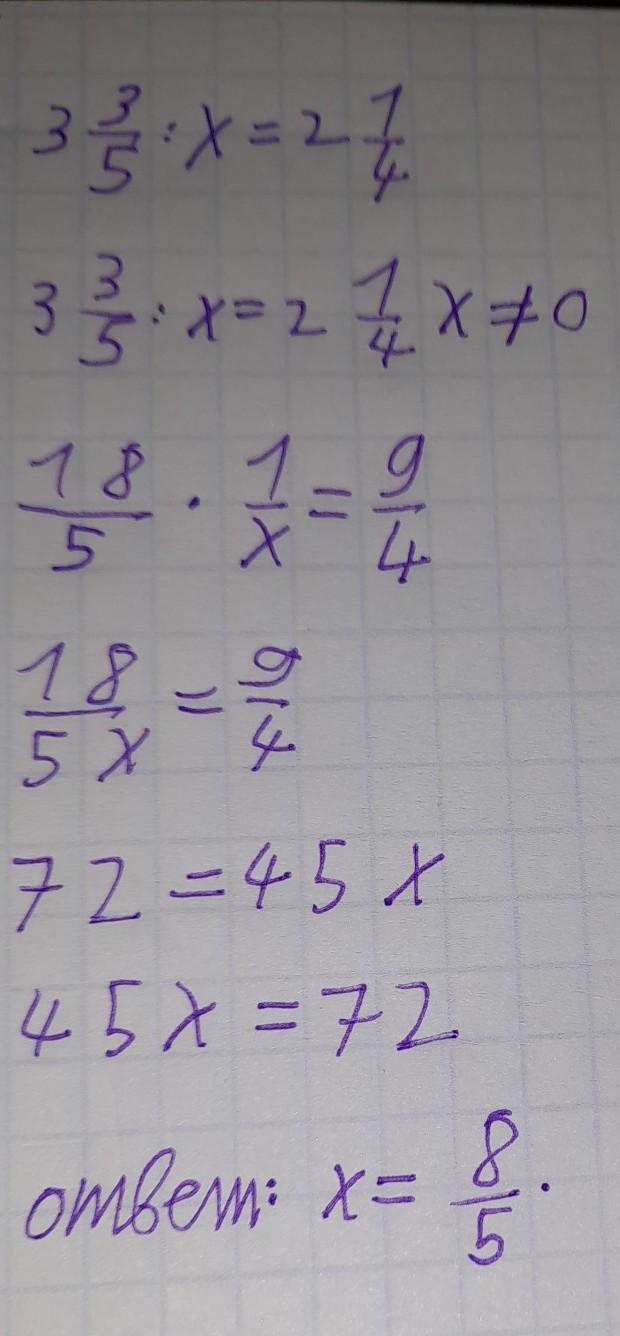 3 3/5 : x = 2 1/4
3 3/5 : x = 2 1/4 x ≠ 0
18/5 · 1/x = 9/4
18/5x = 9/4
72 = 45x
45x = 72
ответ: x = 8/5.